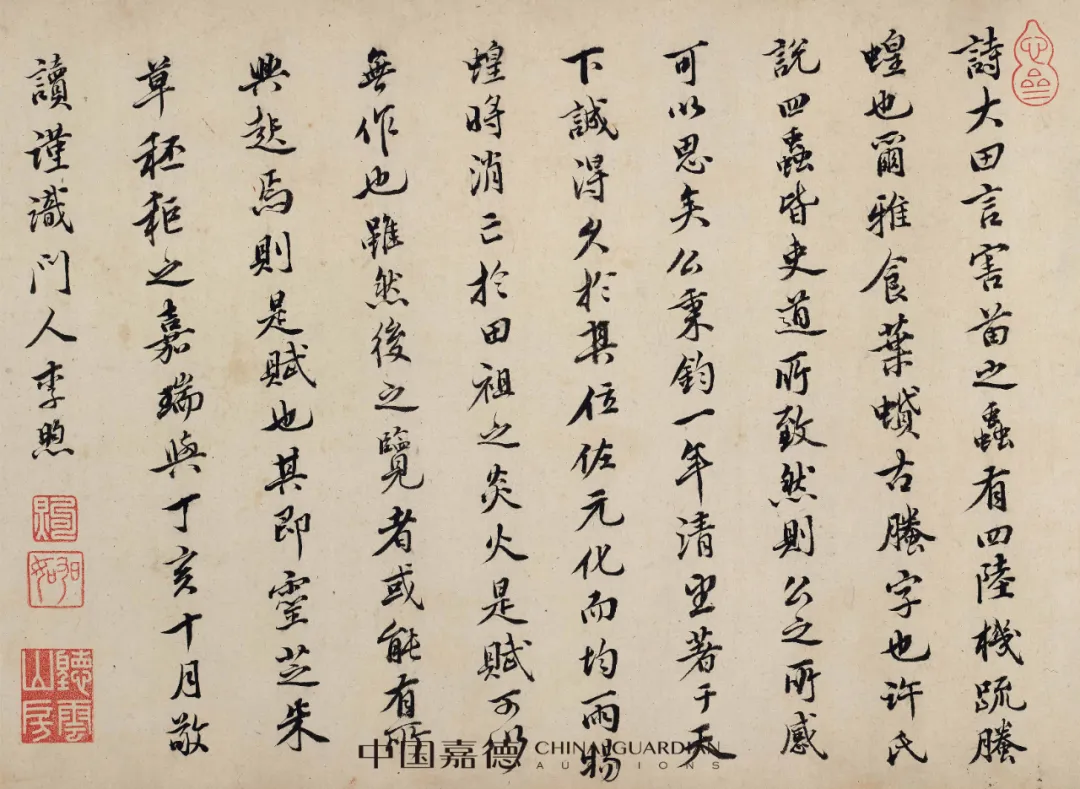 詩大田言害苗之蟲有四陸機疏螣
蝗也爾雅食葉蟘古螣字也許氏
說四蟲皆吏道所致然則公之所感
可以思矣公秉鈞一年清望著于天
下誠得久於其位佐元化而均雨暘
蝗將消亡於田祖之炎火是賦可以
無作也雖然後之覽者或能有所
興起焉則是賦也其即靈芝朱
草秠秬之嘉瑞與丁亥十月敬
讀謹識門人李煦
聽雲山房
中国嘉德 CHINA GUARDIAN
AUCTIONS